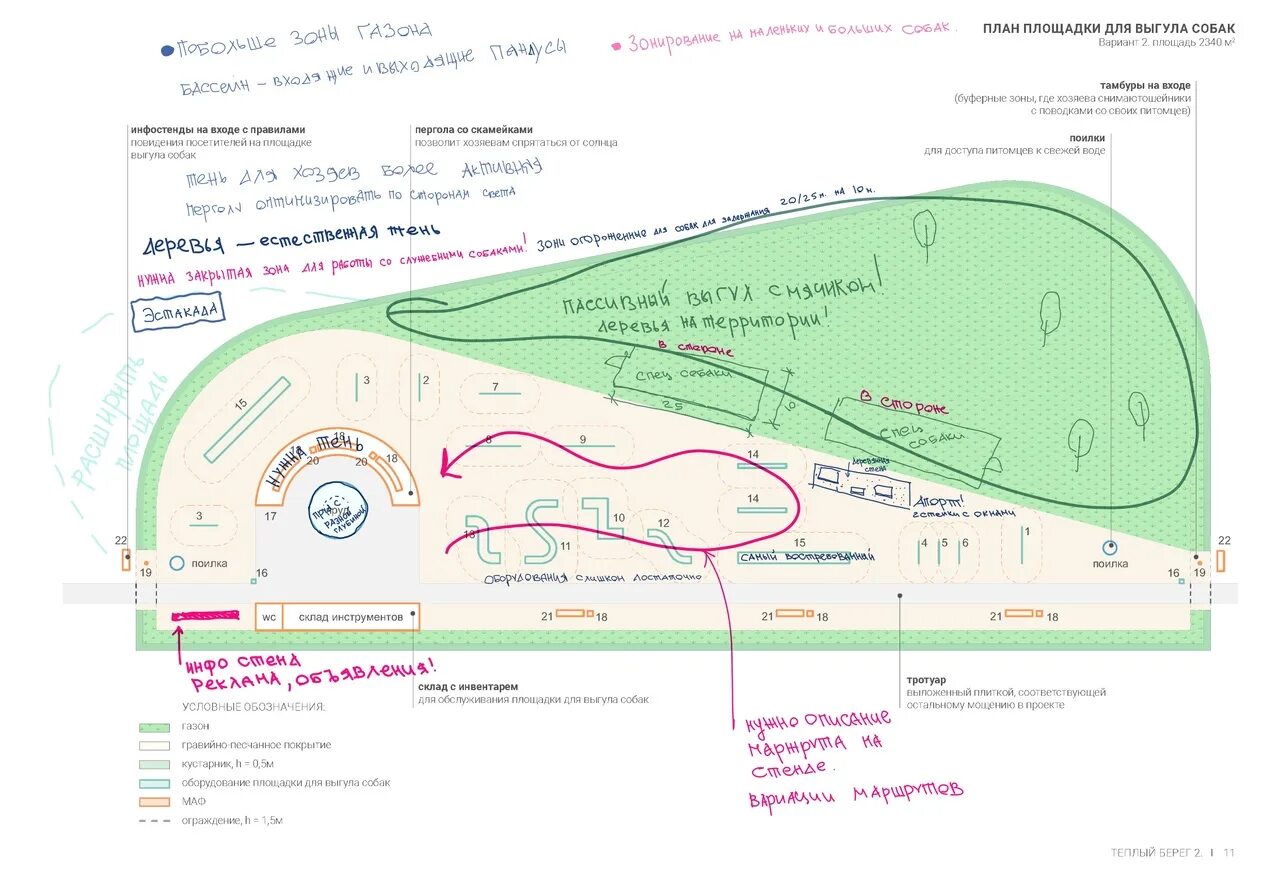 ПЛАН ПЛОЩАДКИ ДЛЯ ВЫГУЛА СОБАК
Вариант 2. площадь 2340 м²
ПОБОЛЬШЕ ЗОНЫ ГАЗОНА
БАССЕЙН – ВХОДЯЩИЕ И ВЫХОДЯЩИЕ ПАНДУСЫ
Зонирование на маленьких и больших собак.
тамбуры на входе
(буферные зоны, где хозяева снимаютошейники
с поводками со своих питомцев)
поилки
для доступа питомцев к свежей воде
инфостенды на входе с правилами
повидения посетителей на площадке
выгула собак
пергола со скамейками
позволит хозяевам спрятаться от солнца
ТЕНЬ ДЛЯ ХОЗЯЕВ БОЛЕЕ АКТИВНАЯ
ПЕРГОЛУ ОПТИМИЗИРОВАТЬ ПО СТОРОНАМ СВЕТА
ДЕРЕВЬЯ – ЕСТЕСТВЕННАЯ ТЕНЬ
НУЖНА ЗАКРЫТАЯ ЗОНА ДЛЯ РАБОТЫ СО СЛУЖЕБНИМИ СОБАКАМИ!
ЗОНИ ОГОРОЖЕННИЕ ДЛЯ СОБАК ДЛЯ ЗАДЕРЖАНИЯ 20/25м. НА 10м.
ЭСТАКАДА
РАСШИРИТЬ
ПЛОЩАДЬ
ПАССИВНЫЙ ВЫГУЛ С МЯЧИКОМ!
ДЕРЕВЬЯ НА ТЕРРИТОРИИ!
В СТОРОНЕ
СПЕЦ СОБАКИ
25
10
В СТОРОНЕ
СПЕЦ
СОБАКИ
15
3
2
7
8
9
14
14
НУЖНА ТЕНЬ
18
20
20
18
17
ПРУД С
РАЗНОЙ
ГЛУБИНОЙ
ДЕРЕВЯННАЯ
СТЕНА
АПОРТ!
2 СТЕНКИ С ОКНАМИ
3
13
11
10
12
15
САМЫЙ ВОСТРЕБОВАННЫЙ
4
5
6
1
22
19
поилка
16
ОБОРУДОВАНИЯ СЛИШКОМ ДОСТАТОЧНО
поилка
16
19
22
wc
склад инструментов
21
18
21
18
21
18
ИНФО СТЕНД
РЕКЛАМА, ОБЪЯВЛЕНИЯ!
склад с инвентарем
для обслуживания площадки для выгула собак
тротуар
выложенный плиткой, соответствующей
остальному мощению в проекте
НУЖНО ОПИСАНИЕ
МАРШРУТА НА
СТЕНДЕ.
ВАРИАЦИИ МАРШРУТОВ
УСЛОВНЫЕ ОБОЗНАЧЕНИЯ:
газон
гравийно-песчанное покрытие
кустарник, h = 0,5м
оборудование площадки для выгула собак
МАФ
ограждение, h = 1,5м
ТЕПЛЫЙ БЕРЕГ 2. I 11